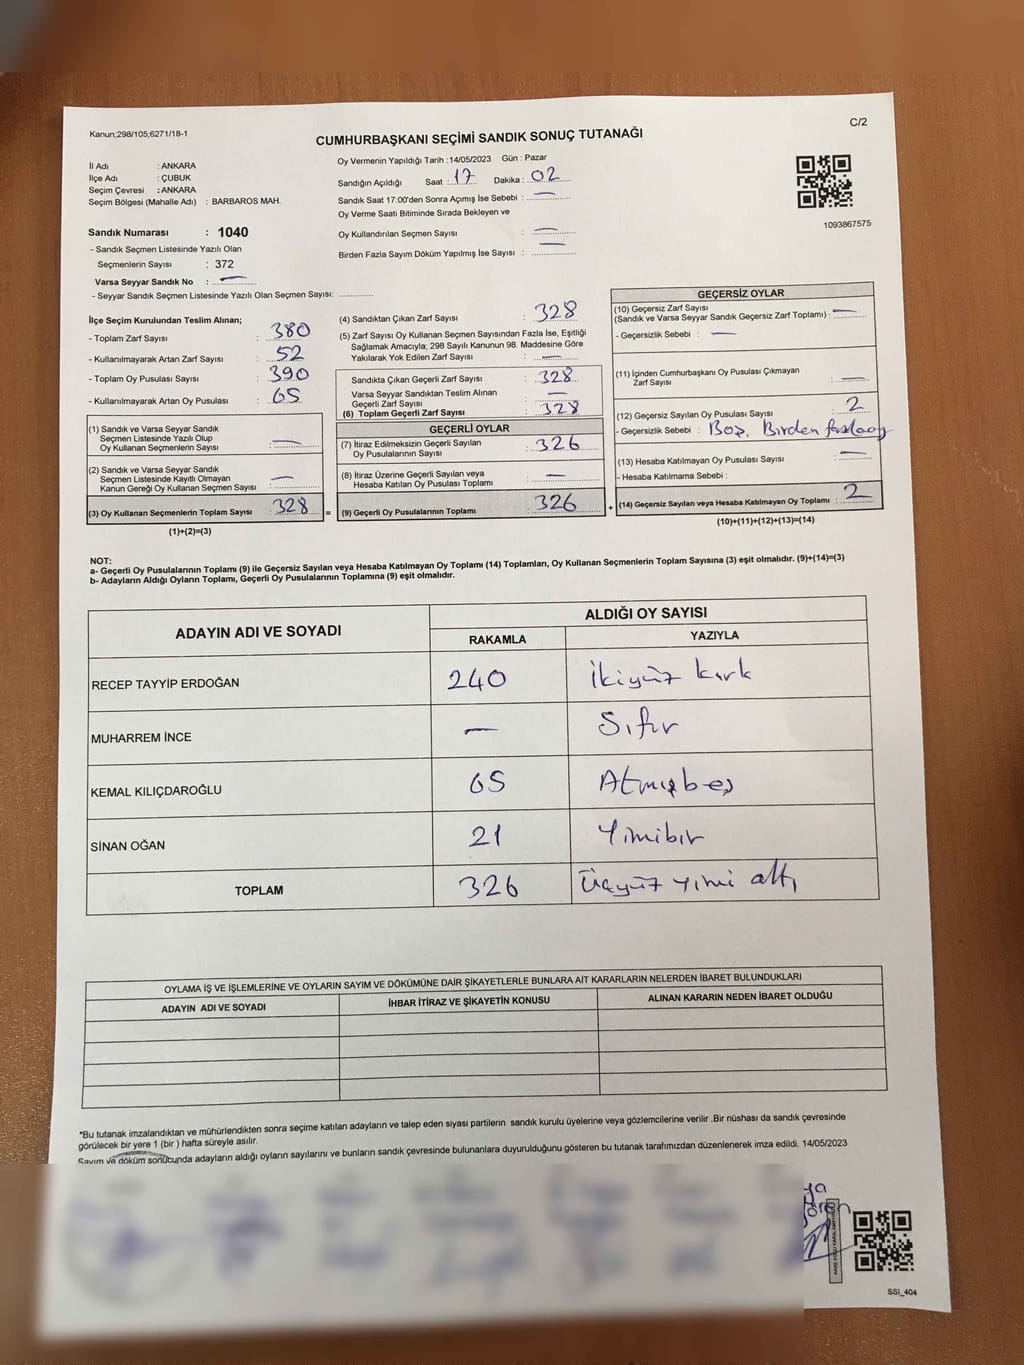 Kanun;298/105;6271/18-1
C/2
CUMHURBAŞKANI SEÇİMİ SANDIK SONUÇ TUTANAĞI
İl Adı : ANKARA
İlçe Adı : ÇUBUK
Seçim Çevresi : ANKARA
Seçim Bölgesi (Mahalle Adı) : BARBAROS MAH.
Sandık Numarası : 1040
- Sandık Seçmen Listesinde Yazılı Olan
Seçmenlerin Sayısı : 372
Varsa Seyyar Sandık No : —
- Seyyar Sandık Seçmen Listesinde Yazılı Olan Seçmen Sayısı:
Oy Vermenin Yapıldığı Tarih :14/05/2023 Gün : Pazar
Sandığın Açıldığı Saat : 17 Dakika : 02
Sandık Saat 17:00'den Sonra Açımış İse Sebebi : —
Oy Verme Saati Bitiminde Sırada Bekleyen ve
Oy Kullandırılan Seçmen Sayısı : —
Birden Fazla Sayım Döküm Yapılmış İse Sayısı : —
1093867575
İlçe Seçim Kurulundan Teslim Alınan;
- Toplam Zarf Sayısı : 380
- Kullanılmayarak Artan Zarf Sayısı : 52
- Toplam Oy Pusulası Sayısı : 390
- Kullanılmayarak Artan Oy Pusulası : 65
(1) Sandık ve Varsa Seyyar Sandık
Seçmen Listesinde Yazılı Olup
Oy Kullanan Seçmenlerin Sayısı : —
(2) Sandık ve Varsa Seyyar Sandık
Seçmen Listesinde Kayıtlı Olmayan
Kanun Gereği Oy Kullanan Seçmen Sayısı : —
(3) Oy Kullanan Seçmenlerin Toplam Sayısı : 328 =
(1)+(2)=(3)
(4) Sandıktan Çıkan Zarf Sayısı : 328
(5) Zarf Sayısı Oy Kullanan Seçmen Sayısından Fazla İse, Eşitliği
Sağlamak Amacıyla; 298 Sayılı Kanunun 98. Maddesine Göre
Yakılarak Yok Edilen Zarf Sayısı : —
Sandıkta Çıkan Geçerli Zarf Sayısı : 328
Varsa Seyyar Sandıktan Teslim Alınan
Geçerli Zarf Sayısı : —
(6) Toplam Geçerli Zarf Sayısı : 328
GEÇERLİ OYLAR
(7) İtiraz Edilmeksizin Geçerli Sayılan
Oy Pusulalarının Sayısı : 326
(8) İtiraz Üzerine Geçerli Sayılan veya
Hesaba Katılan Oy Pusulası Toplamı : —
(9) Geçerli Oy Pusulalarının Toplamı : 326 +
GEÇERSİZ OYLAR
(10) Geçersiz Zarf Sayısı
(Sandık ve Varsa Seyyar Sandık Geçersiz Zarf Toplamı) : —
- Geçersizlik Sebebi : —
(11) İçinden Cumhurbaşkanı Oy Pusulası Çıkmayan
Zarf Sayısı : —
(12) Geçersiz Sayılan Oy Pusulası Sayısı : 2
- Geçersizlik Sebebi : Boş, Birden fazla oy
(13) Hesaba Katılmayan Oy Pusulası Sayısı : —
- Hesaba Katılmama Sebebi :
(14) Geçersiz Sayılan veya Hesaba Katılmayan Oy Toplamı : 2
(10)+(11)+(12)+(13)=(14)
NOT:
a- Geçerli Oy Pusulalarının Toplamı (9) ile Geçersiz Sayılan veya Hesap Katılmayan Oy Toplamı (14) Toplamları, Oy Kullanan Seçmenlerin Toplam Sayısına (3) eşit olmalıdır. (9)+(14)=(3)
b- Adayların Aldığı Oyların Toplamı, Geçerli Oy Pusulalarının Toplamına (9) eşit olmalıdır.
ADAYIN ADI VE SOYADI
ALDIĞI OY SAYISI
RAKAMLA YAZIYLA
RECEP TAYYİP ERDOĞAN 240 İkiyüz kırk
MUHARREM İNCE — Sıfır
KEMAL KILIÇDAROĞLU 65 Atmışbeş
SİNAN OĞAN 21 Yimibir
TOPLAM 326 Üçyüz yimi altı
OYLAMA İŞ VE İŞLEMLERİNE VE OYLARIN SAYIM VE DÖKÜMÜNE DAİR ŞİKAYETLERLE BUNLARA AİT KARARLARIN NELERDEN İBARET BULUNDUKLARI
ADAYIN ADI VE SOYADI İHBAR İTİRAZ VE ŞİKAYETİN KONUSU ALINAN KARARIN NEDEN İBARET OLDUĞU
*Bu tutanak imzalandıktan ve mühürlendikten sonra seçime katılan adayların ve talep eden siyasi partilerin sandık kurulu üyelerine veya gözlemcilerine verilir .Bir nüshası da sandık çevresinde
görülecek bir yere 1 (bir ) hafta süreyle asılır.
Sayım ve döküm sonucunda adayların aldığı oyların sayılarını ve bunların sandık çevresinde bulunanlara duyurulduğunu gösteren bu tutanak tarafımızdan düzenlenerek imza edildi. 14/05/2023
SSI_404